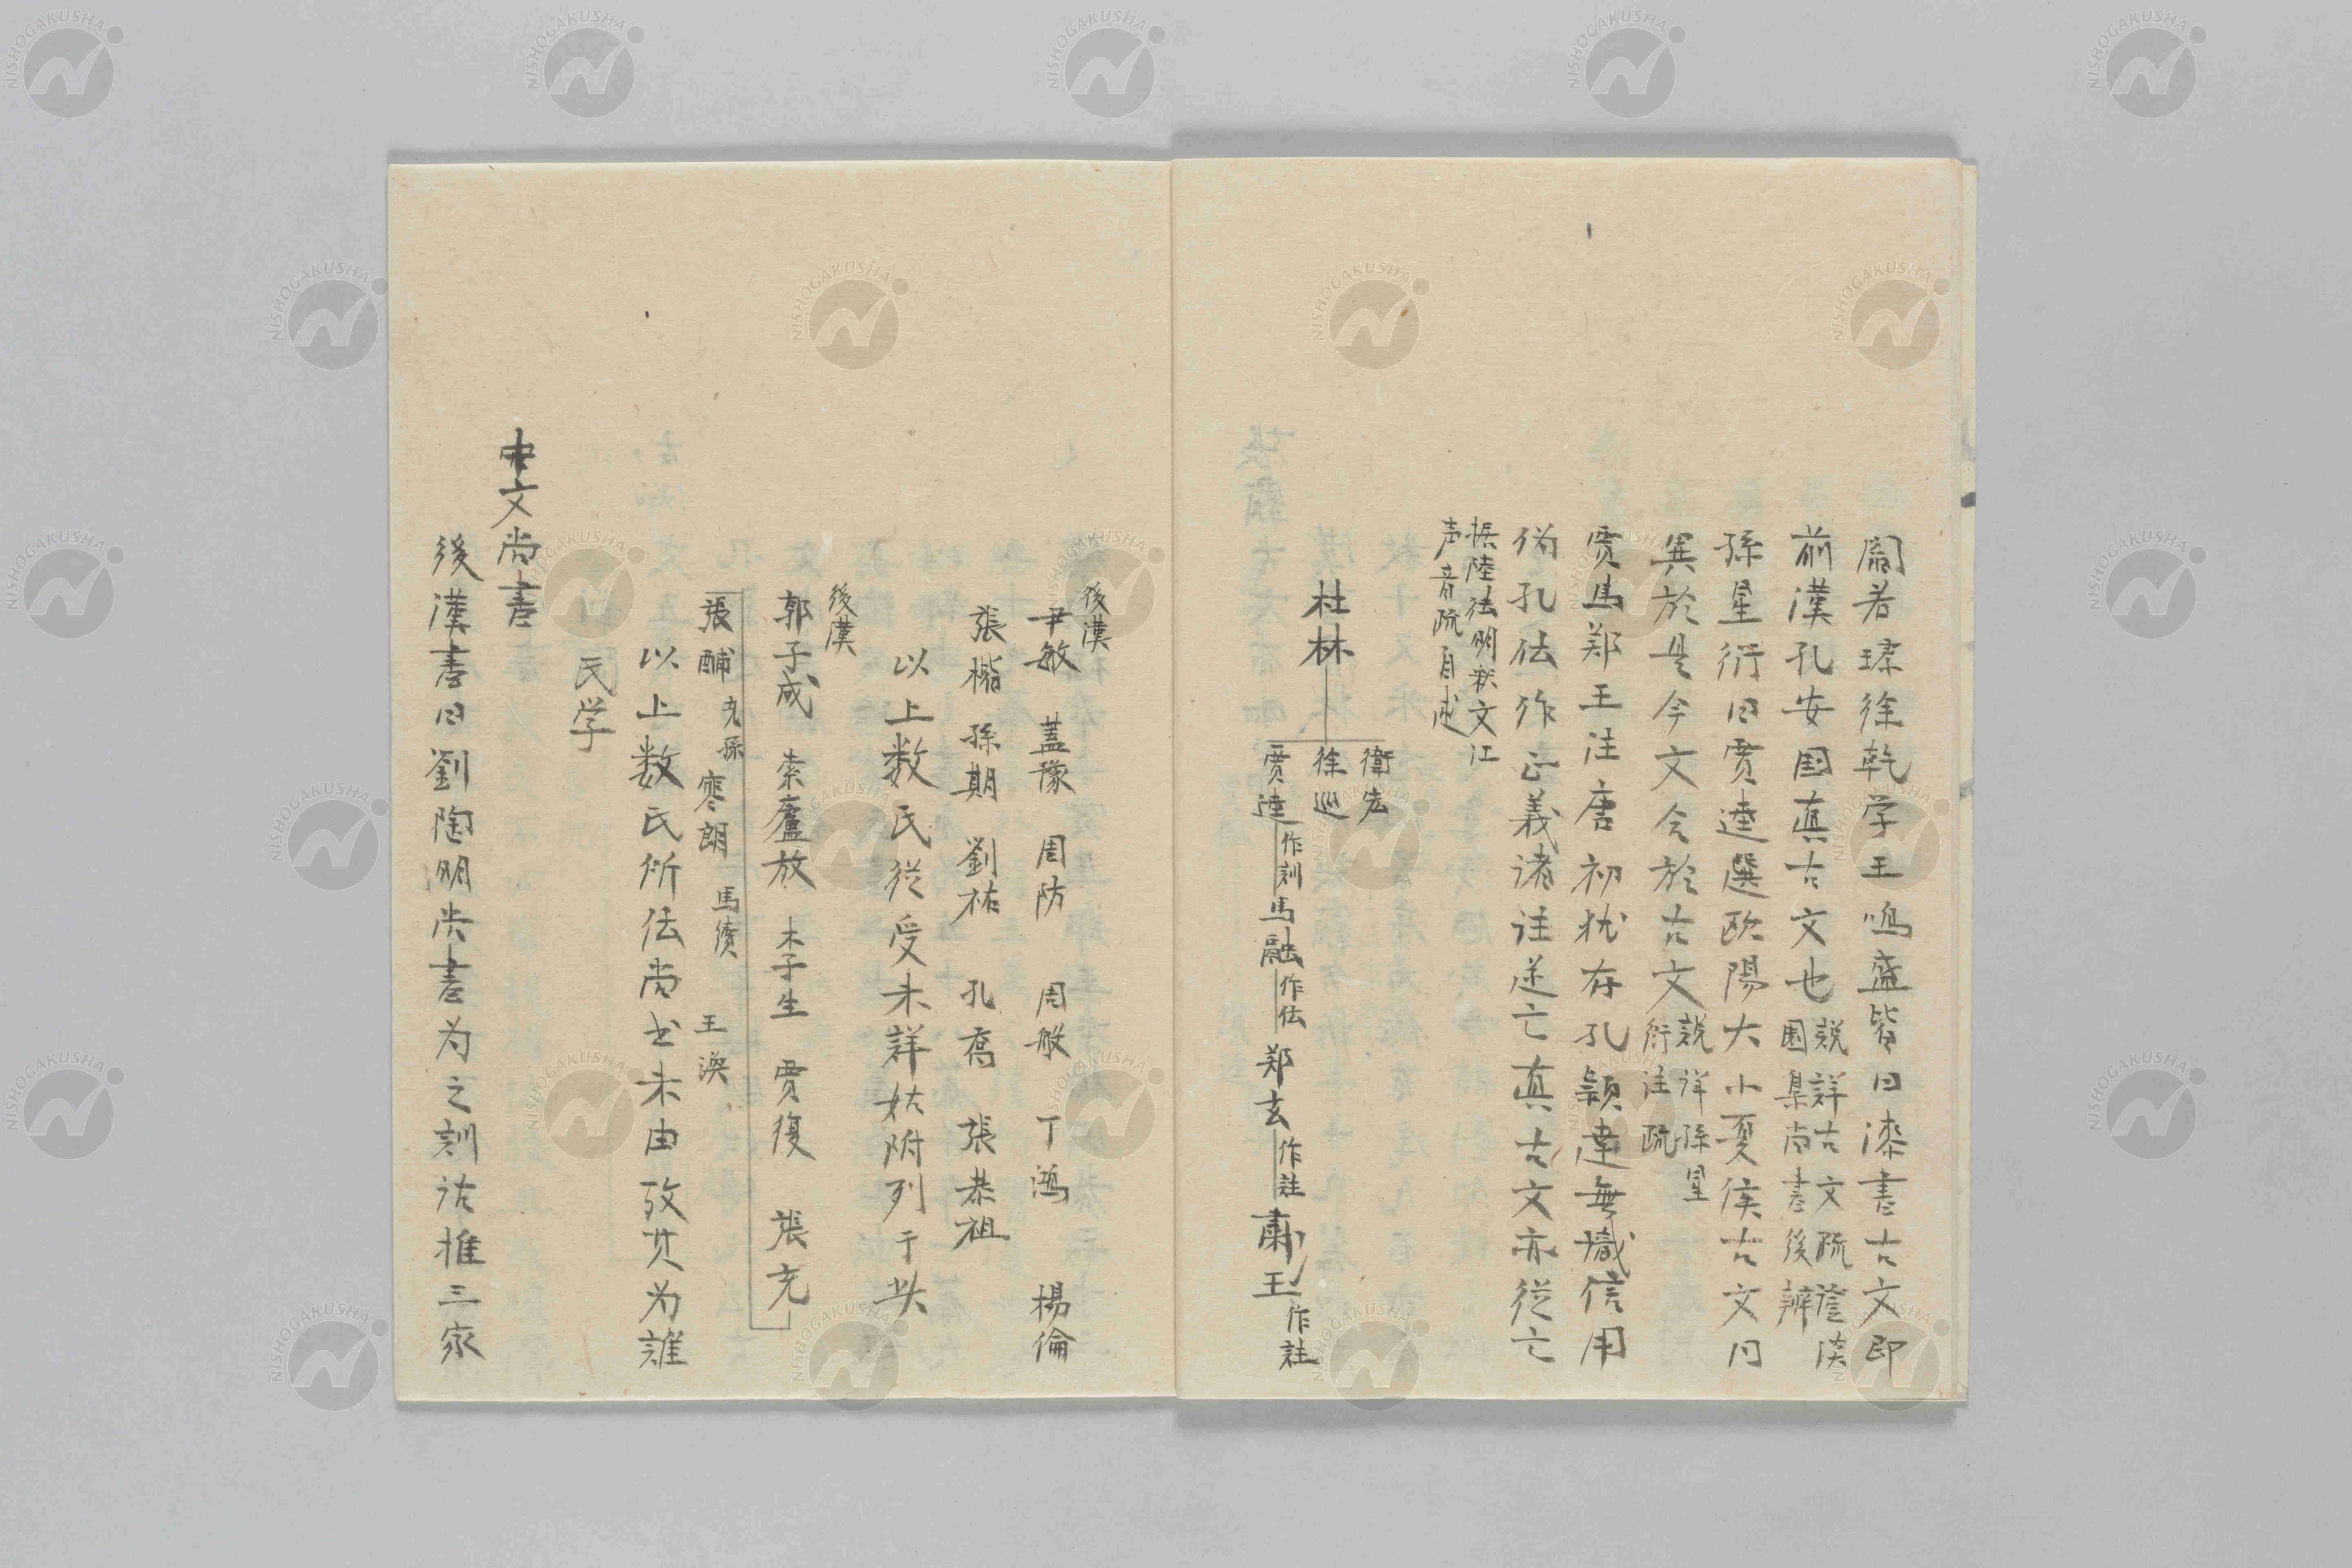 閻若璩徐乾学王鳴盛皆曰漆書古文即
前漢孔安国真古文也説詳古文疏證漢
国集尚書後辨
孫星衍曰賈逵選欧陽大小夏侯古文同
異於是今文合於古文説詳孫星
衍注疏
賈馬郑王注唐初犹存孔穎達無識信用
偽孔伝作正義諸注遂亡真古文亦従亡
拠陸法明釈文江
声音疏自述
杜林
衛宏
徐巡
賈逵作訓馬融作伝郑玄作註肅王作註
後漢
尹敏 蓋豫 周防 周磐 丁鴻 楊倫
張楷 孫期 劉祐 孔喬 張恭祖
以上数氏従受未詳姑附列于此
後漢
郭子威 索盧放 李子生 賈復 張充
張酺充孫 寒朗 馬続 王渙
以上数氏所伝尚书未由攷其为誰
氏学
中文尚書
後漢書曰劉陶明尚書为之訓詁推三家
NISHOGAKUSHA